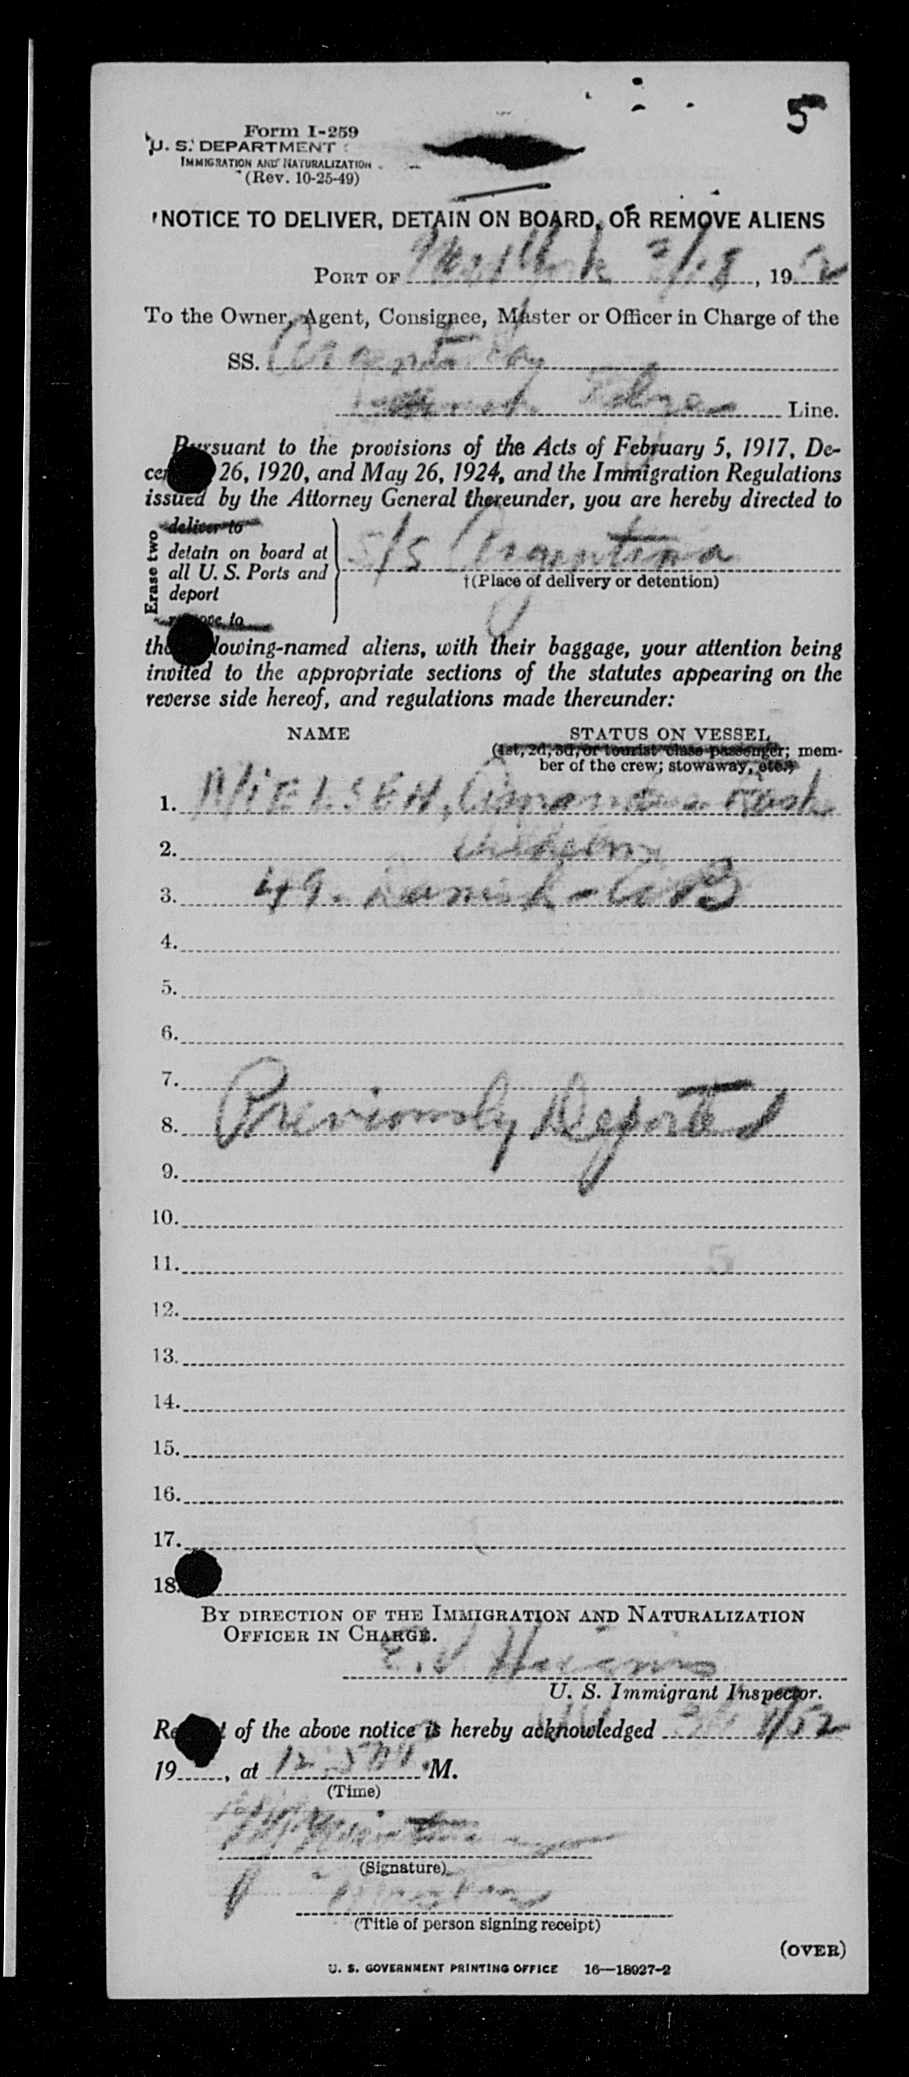 5
Form I-259
U. S. DEPARTMENT
IMMIGRATION AND NATURALIZATION
(Rev. 10-25-49)
NOTICE TO DELIVER, DETAIN ON BOARD, OR REMOVE ALIENS
PORT OF New York 3/18, 1952
To the Owner, Agent, Consignee, Master or Officer in Charge of the
SS. Argentina
Line.
Pursuant to the provisions of the Acts of February 5, 1917, De-
26, 1920, and May 26, 1924, and the Immigration Regulations
issued by the Attorney General thereunder, you are hereby directed to
Erase two
deliver to
detain on board at
all U. S. Ports and
deport
remove to
S/S Argentina
†(Place of delivery or detention)
following-named aliens, with their baggage, your attention being
invited to the appropriate sections of the statutes appearing on the
reverse side hereof, and regulations made thereunder:
NAME STATUS ON VESSEL
(1st, 2d, 3d, or tourist class passenger; mem-
ber of the crew; stowaway, etc.)
1. NIELSEN,
2. Wilhelm
3. 49. Danish -
4.
5.
6.
7.
8. Previously Deported
9.
10.
11.
12.
13.
14.
15.
16.
17.
18.
BY DIRECTION OF THE IMMIGRATION AND NATURALIZATION
OFFICER IN CHARGE.
E.
U. S. Immigrant Inspector.
of the above notice is hereby acknowledged
19....., at M.
(Time)
(Signature)
(Title of person signing receipt)
(OVER)
U. S. GOVERNMENT PRINTING OFFICE 16—18027-2